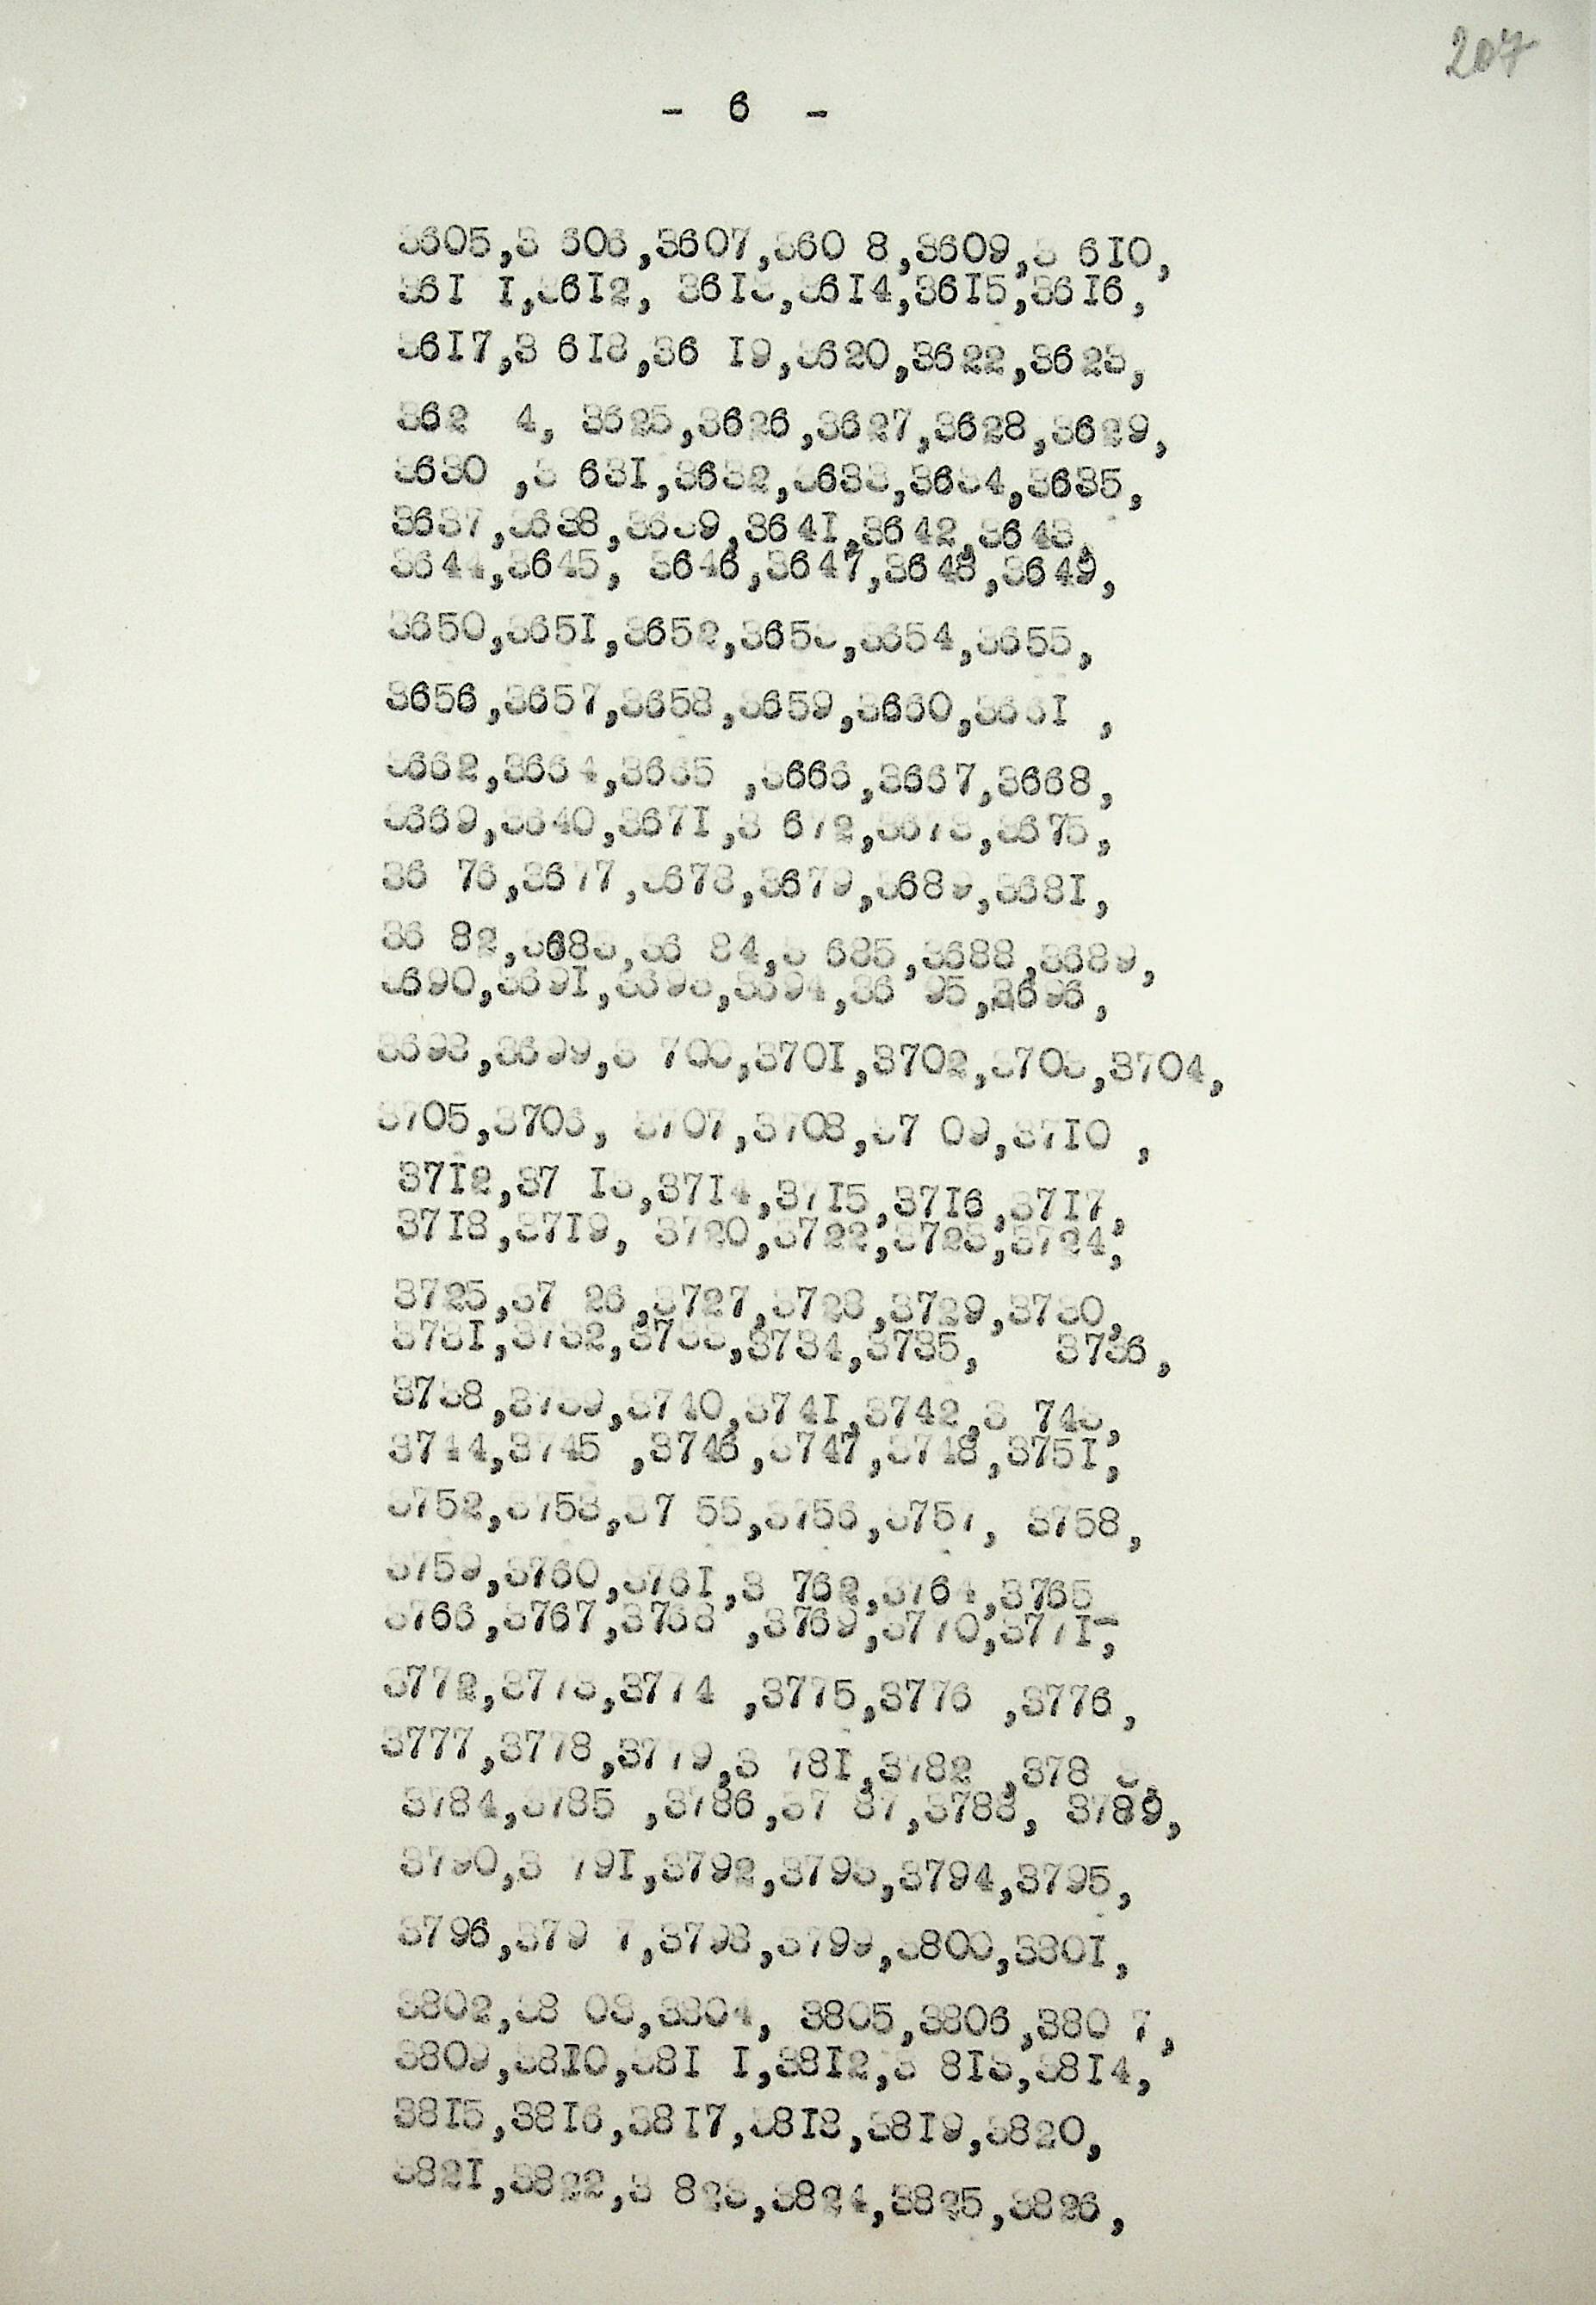 207
- 6 -
3605,3 606,3607,360 8,3609,3 6I0,
36I I,36I2, 36I3,36I4,36I5,36I6,
36I7,3 6I8,36 I9,3620,3622,3623,
362 4, 3625,3626,3627,3628,3629,
3630 ,3 63I,3632,3633,3634,3635,
3637,3638,3639,364I,3642,3643,
3644,3645, 3646,3647,3648,3649,
3650,365I,3652,3653,3654,3655,
3656,3657,3658,3659,3660,366I ,
3662,3664,3665 ,3666,3667,3668,
3669,3640,367I,3 672,3673,3675,
36 76,3677,3678,3679,3689,368I,
36 82,3683,36 84,3 685,3688,3689,
3690,369I,3693,3694,36 95,3696,
3698,3699,3 700,370I,3702,3703,3704,
3705,3706, 3707,3708,37 09,37I0 ,
37I2,37 I3,37I4,37I5,37I6,37I7,
37I8,37I9, 3720,3722,3723,3724,
3725,37 26,3727,3728,3729,3730,
373I,3732,3733,3734,3735, 3736,
3738,3739,3740,374I,3742,3 743,
3744,3745 ,3746,3747,3748,375I,
3752,3753,37 55,3756,3757, 3758,
3759,3760,376I,3 762,3764,3765
3766,3767,3768 ,3769,3770,377I-,
3772,3773,3774 ,3775,3776 ,3776,
3777,3778,3779,3 78I,3782 ,378 3,
3784,3785 ,3786,37 87,3788, 3789,
3790,3 79I,3792,3793,3794,3795,
3796,379 7,3798,3799,3800,380I,
3802,38 03,3804, 3805,3806,380 7,
3809,38I0,38I I,38I2,3 8I3,38I4,
38I5,38I6,38I7,38I8,38I9,3820,
382I,3822,3 823,3824,3825,3826,